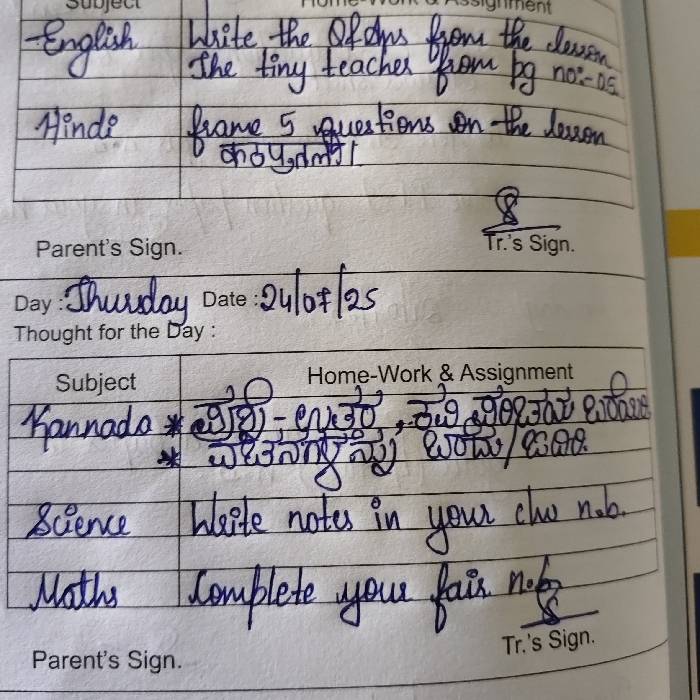 Subject Home-Work & Assignment
English Write the Q & Ans from the lesson
The tiny teacher from pg no:-05
Hindi frame 5 questions on the lesson
कठपुतली।
Parent's Sign. Tr.'s Sign.
Day : Thursday Date : 24/07/25
Thought for the Day :
Subject Home-Work & Assignment
Kannada * ಪ್ರಶ್ನೆ - ಉತ್ತರ, ಕವಿ ಪರಿಚಯ
* ವಚನಗಳನ್ನು ಬರೆದು /
Science Write notes in your cw n.b.
Maths Complete your fair n.b.
Parent's Sign. Tr.'s Sign.